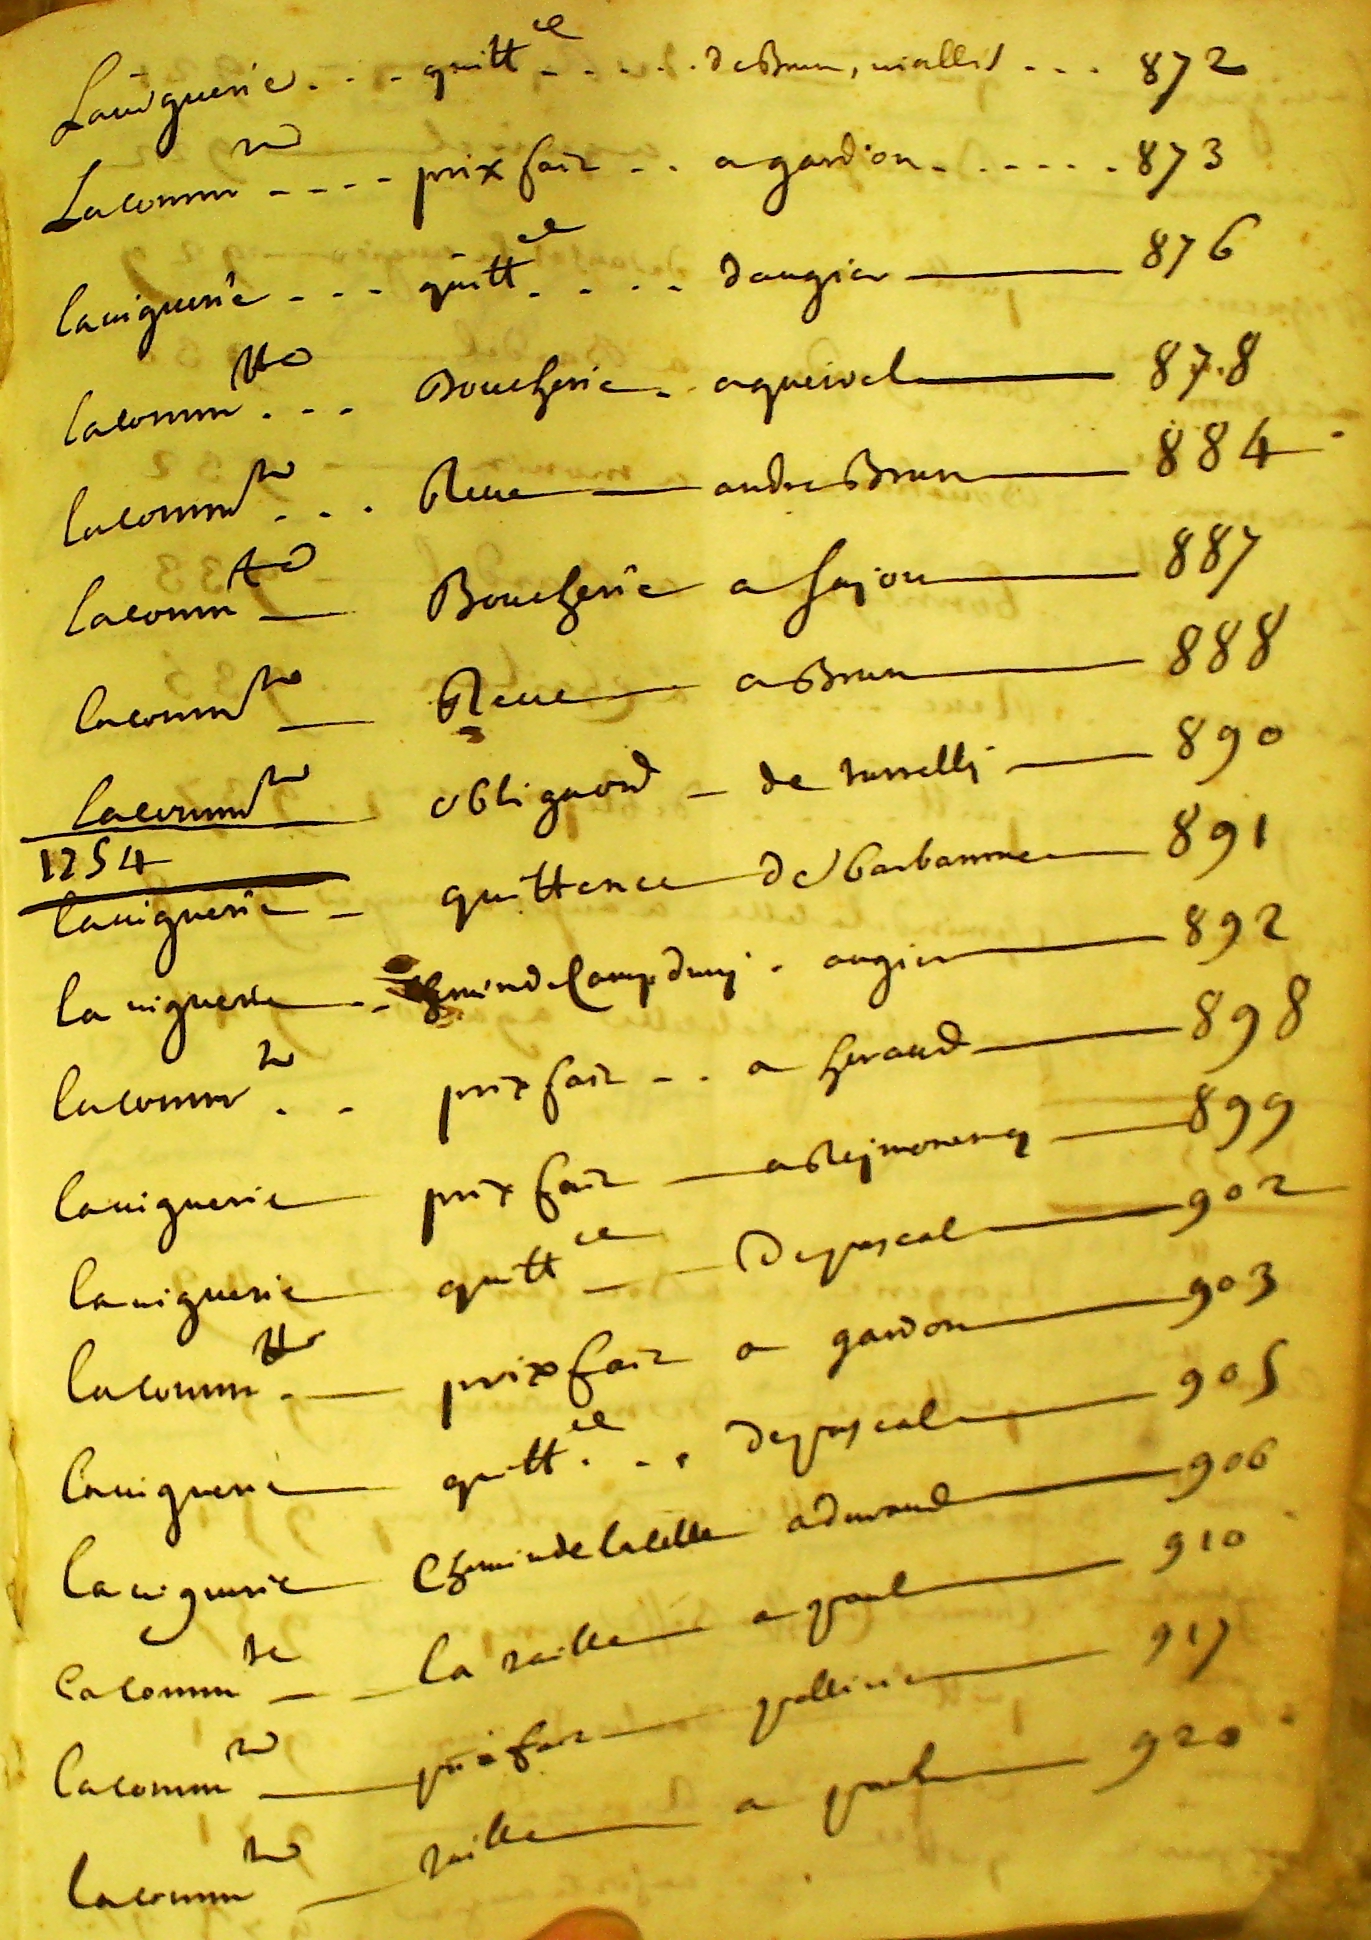 Lauiguerie . . . quitt ce . . . . . de Brun, uiallis . . . 872
La comm té . . . . prix fait . . a gardion . . . . . . 873
la uiguerie . . . quitt ce . . . . daugier — 876
la comm tte . . . Boucherie . a queirel — 87.8
la commté . . . Reue — andre Brun — 884
la comm té — Boucherie a sajou — 887
la commté — Reue — a Brun — 888
la commté obligaõn — de turrellj — 890
1754
la uiguerie — quittence de barbaroux — 891
la uiguerie . . chemin de Campdumj . augier — 892
la comm té . . prix fait . . a heraud — 898
la uiguerie — prix fait — a Rejmonenq — 899
la uiguerie quitt ce — de pascal — 902
la comm tte — prix fait a gardon — 903
la uiguerie quitt ce . . . de pascal — 905
la uiguerie Chemin de la celle a durand — 906
la comm té — la taille a paul — 910
la comm té — prix fait — 917
la comm té — taille — a paul — 920